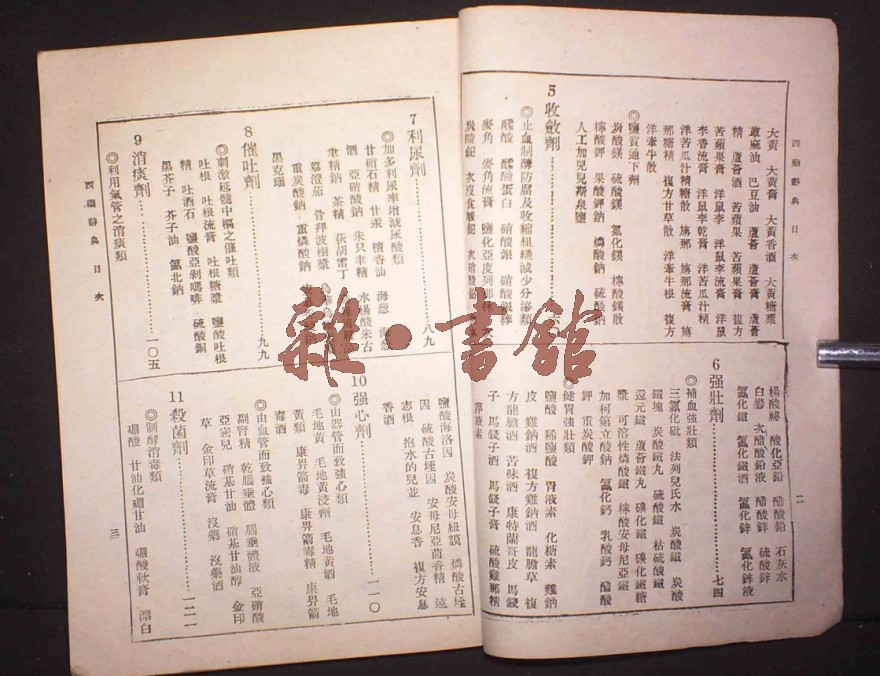 西藥辭典 目次
二
大黃 大黃膏 大黃香酒 大黃糖漿
蓖麻油 巴豆油 蘆薈 蘆薈膏 蘆薈
精 蘆薈酒 苦蘋果 苦蘋果膏 複方
苦蘋果膏 洋鼠李 洋鼠李流膏 洋鼠
李香流膏 洋鼠李乾膏 洋苦瓜汁精
洋苦瓜汁精糖散 旃那 旃那流膏 旃
那糖精 複方甘草散 洋牽牛根 複方
洋牽牛散
◎鹽質通下劑
炭酸鎂 硫酸鎂 氯化鎂 檸檬酸鎂散
檸酸鉀 果酸鉀鈉 燐酸鈉 硫酸鈉
人工加兒兒斯泉鹽
5 收斂劑
◎止血制酵防腐及收縮組織減少分泌類
醋酸 醋酸蛋白 硝酸銀 硝酸銀棒
麥角 麥角流膏 鹽化亞皮列那林
楊酸鉍 酸化亞鉛 醋酸鉛 石灰水
白礬 次醋酸鉛液 醋酸鋅 硫酸鋅
氯化鐵 氯化鐵酒 氯化鋅 氯化鋅液
6 强壯劑…………七四
◎補血强壯類
三氯化砒 法列兒氏水 炭酸鐵 炭酸
鐵塊 炭酸鐵丸 硫酸鐵 枯硫酸鐵
還元鐵 蘆薈鐵丸 碘化鐵 碘化鐵糖
漿 可溶性燐酸鐵 檸酸安母尼亞鐵
加柯第立酸鈉 氯化鈣 乳酸鈣 醋酸
鉀 重炭酸鉀
◎健胃强壯類
鹽酸 稀鹽酸 胃液素 化糖素 雞鈉
皮 雞鈉酒 複方雞鈉酒 龍膽草 複
方龍膽酒 苦味酒 康特蘭哥皮 馬錢
子 馬錢子酒 馬錢子膏 硫酸雞那精
澤液素
7 利尿劑…………八九
◎加多利尿率增減尿酸類
甘硝石精 甘汞 檀香油 海葱
酒 亞硝酸鈉 朱只聿精 水楊酸朱古
聿精鈉 茶精 荻胡雷丁
蓽澄茄 骨拜波樹漿
重炭酸鈉 重燐酸鈉
黑克瑞
8 催吐劑…………九九
◎刺激延髓中樞之催吐類
吐根 吐根流膏 吐根糖漿 鹽酸吐根
精 吐酒石 鹽酸亞剝嗎啡 硫酸銅
黑芥子 芥子油 氯化鈉
9 消痰劑…………一〇五
◎利用氣管之消痰類
鹽酸海洛因 炭酸安母紐謨 燐酸古垤
因 硫酸古垤因 安母尼亞茴香精 遠
志根 抱水的兒並 安息香 複方安息
香酒
10 强心劑…………一一〇
◎由器管而致強心類
毛地黃 毛地黃浸劑 毛地黃酒 毛地
黃類 康毘箭毒 康毘箭毒精 康毘箭
毒酒
◎由血管而致強心類
副腎精 乾腦垂體 腦垂體液 亞硝酸
亞密兒 硝基甘油 硝基甘油醇 金印
草 金印草流膏 沒藥 沒藥酒
11 殺菌劑…………一二一
◎制酵消毒類
硼酸 甘油化硼甘油 硼酸軟膏 漂白
西藥辭典 目次
三
雜·書館